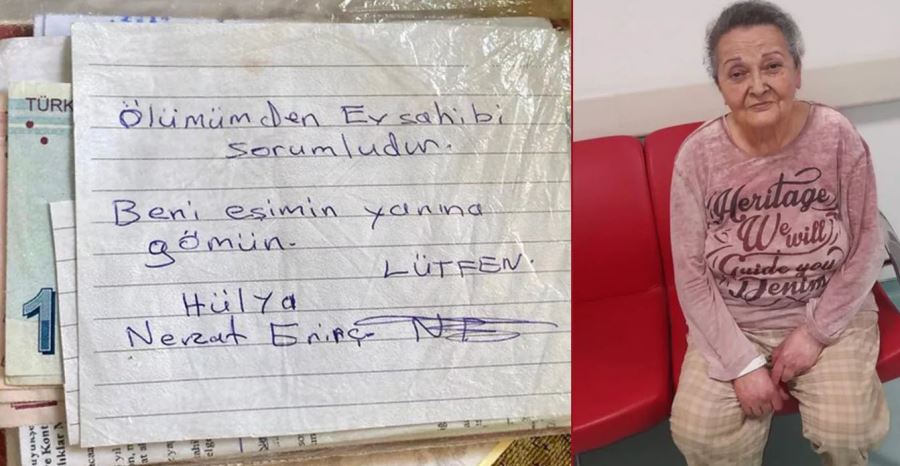 TÜRK
1
Ölümümden Ev sahibi
sorumludur.
Beni eşimin yanına
gömün.
LÜTFEN.
Hülya
Nevzat
Heritage
We will
Guide you
Denim